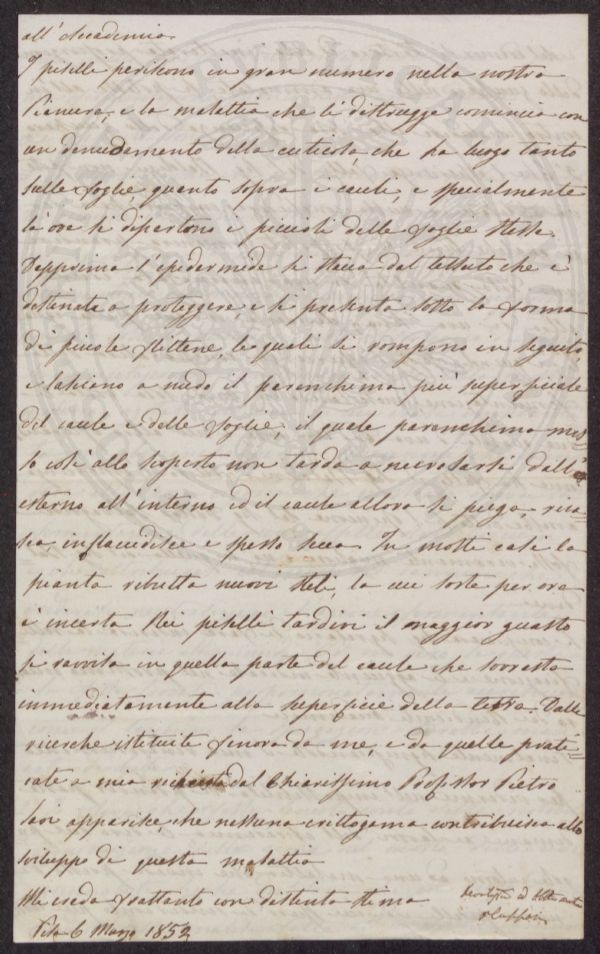 all'Accademia.
I piselli periscono in gran numero nella nostra
Pianura, e la malattia che li distrugge comincia con
un denudamento della cuticola, che ha luogo tanto
sulle foglie, quanto sopra i cauli, e specialmente
là ove si dipartono i piccioli delle foglie stesse.
Dapprima l'epidermide si stacca dal tessuto che è
destinata a proteggere, e si presenta sotto la forma
di piccole flittene, le quali si rompono in seguito,
e lasciano a nudo il parenchima più superficiale
del caule e delle foglie, il quale parenchima mes=
so così allo scoperto non tarda a necrosarsi dall'
esterno all'interno ed il caule allora si piega, rica=
sca, inflaccidisce e spesso secca. In molti casi la
pianta ributta nuovi steli, la cui sorte per ora
è incerta. Nei piselli tardivi il maggior guasto
si ravvisa in quella parte del caule che sovrasta
immediatamente alla superficie della terra. Dalle
ricerche istituite finora da me, e da quelle prati=
cate a mia richiesta dal Chiarissimo Professor Pietro
Savi apparisce, che nessuna crittogama contribuisca allo
sviluppo di questa malattia
Mi creda frattanto con distinta stima
Pisa 6 Marzo 1852